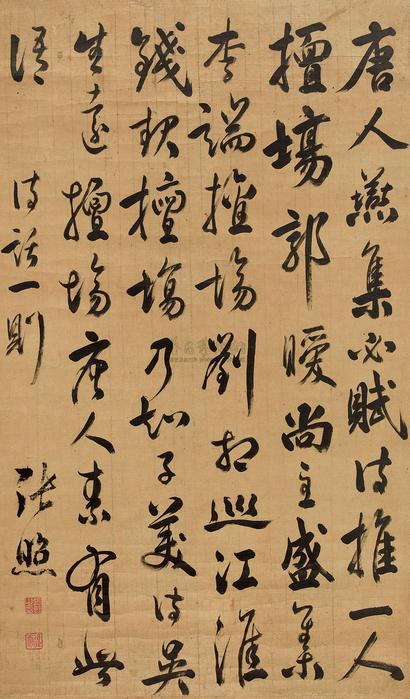 唐人燕集必賦诗推一人
擅場郭曖尚主盛集
李端擅場劉相巡江淮
錢起擅場乃知子美诗吴
生遠擅場唐人素有此
语
诗話一則
张照